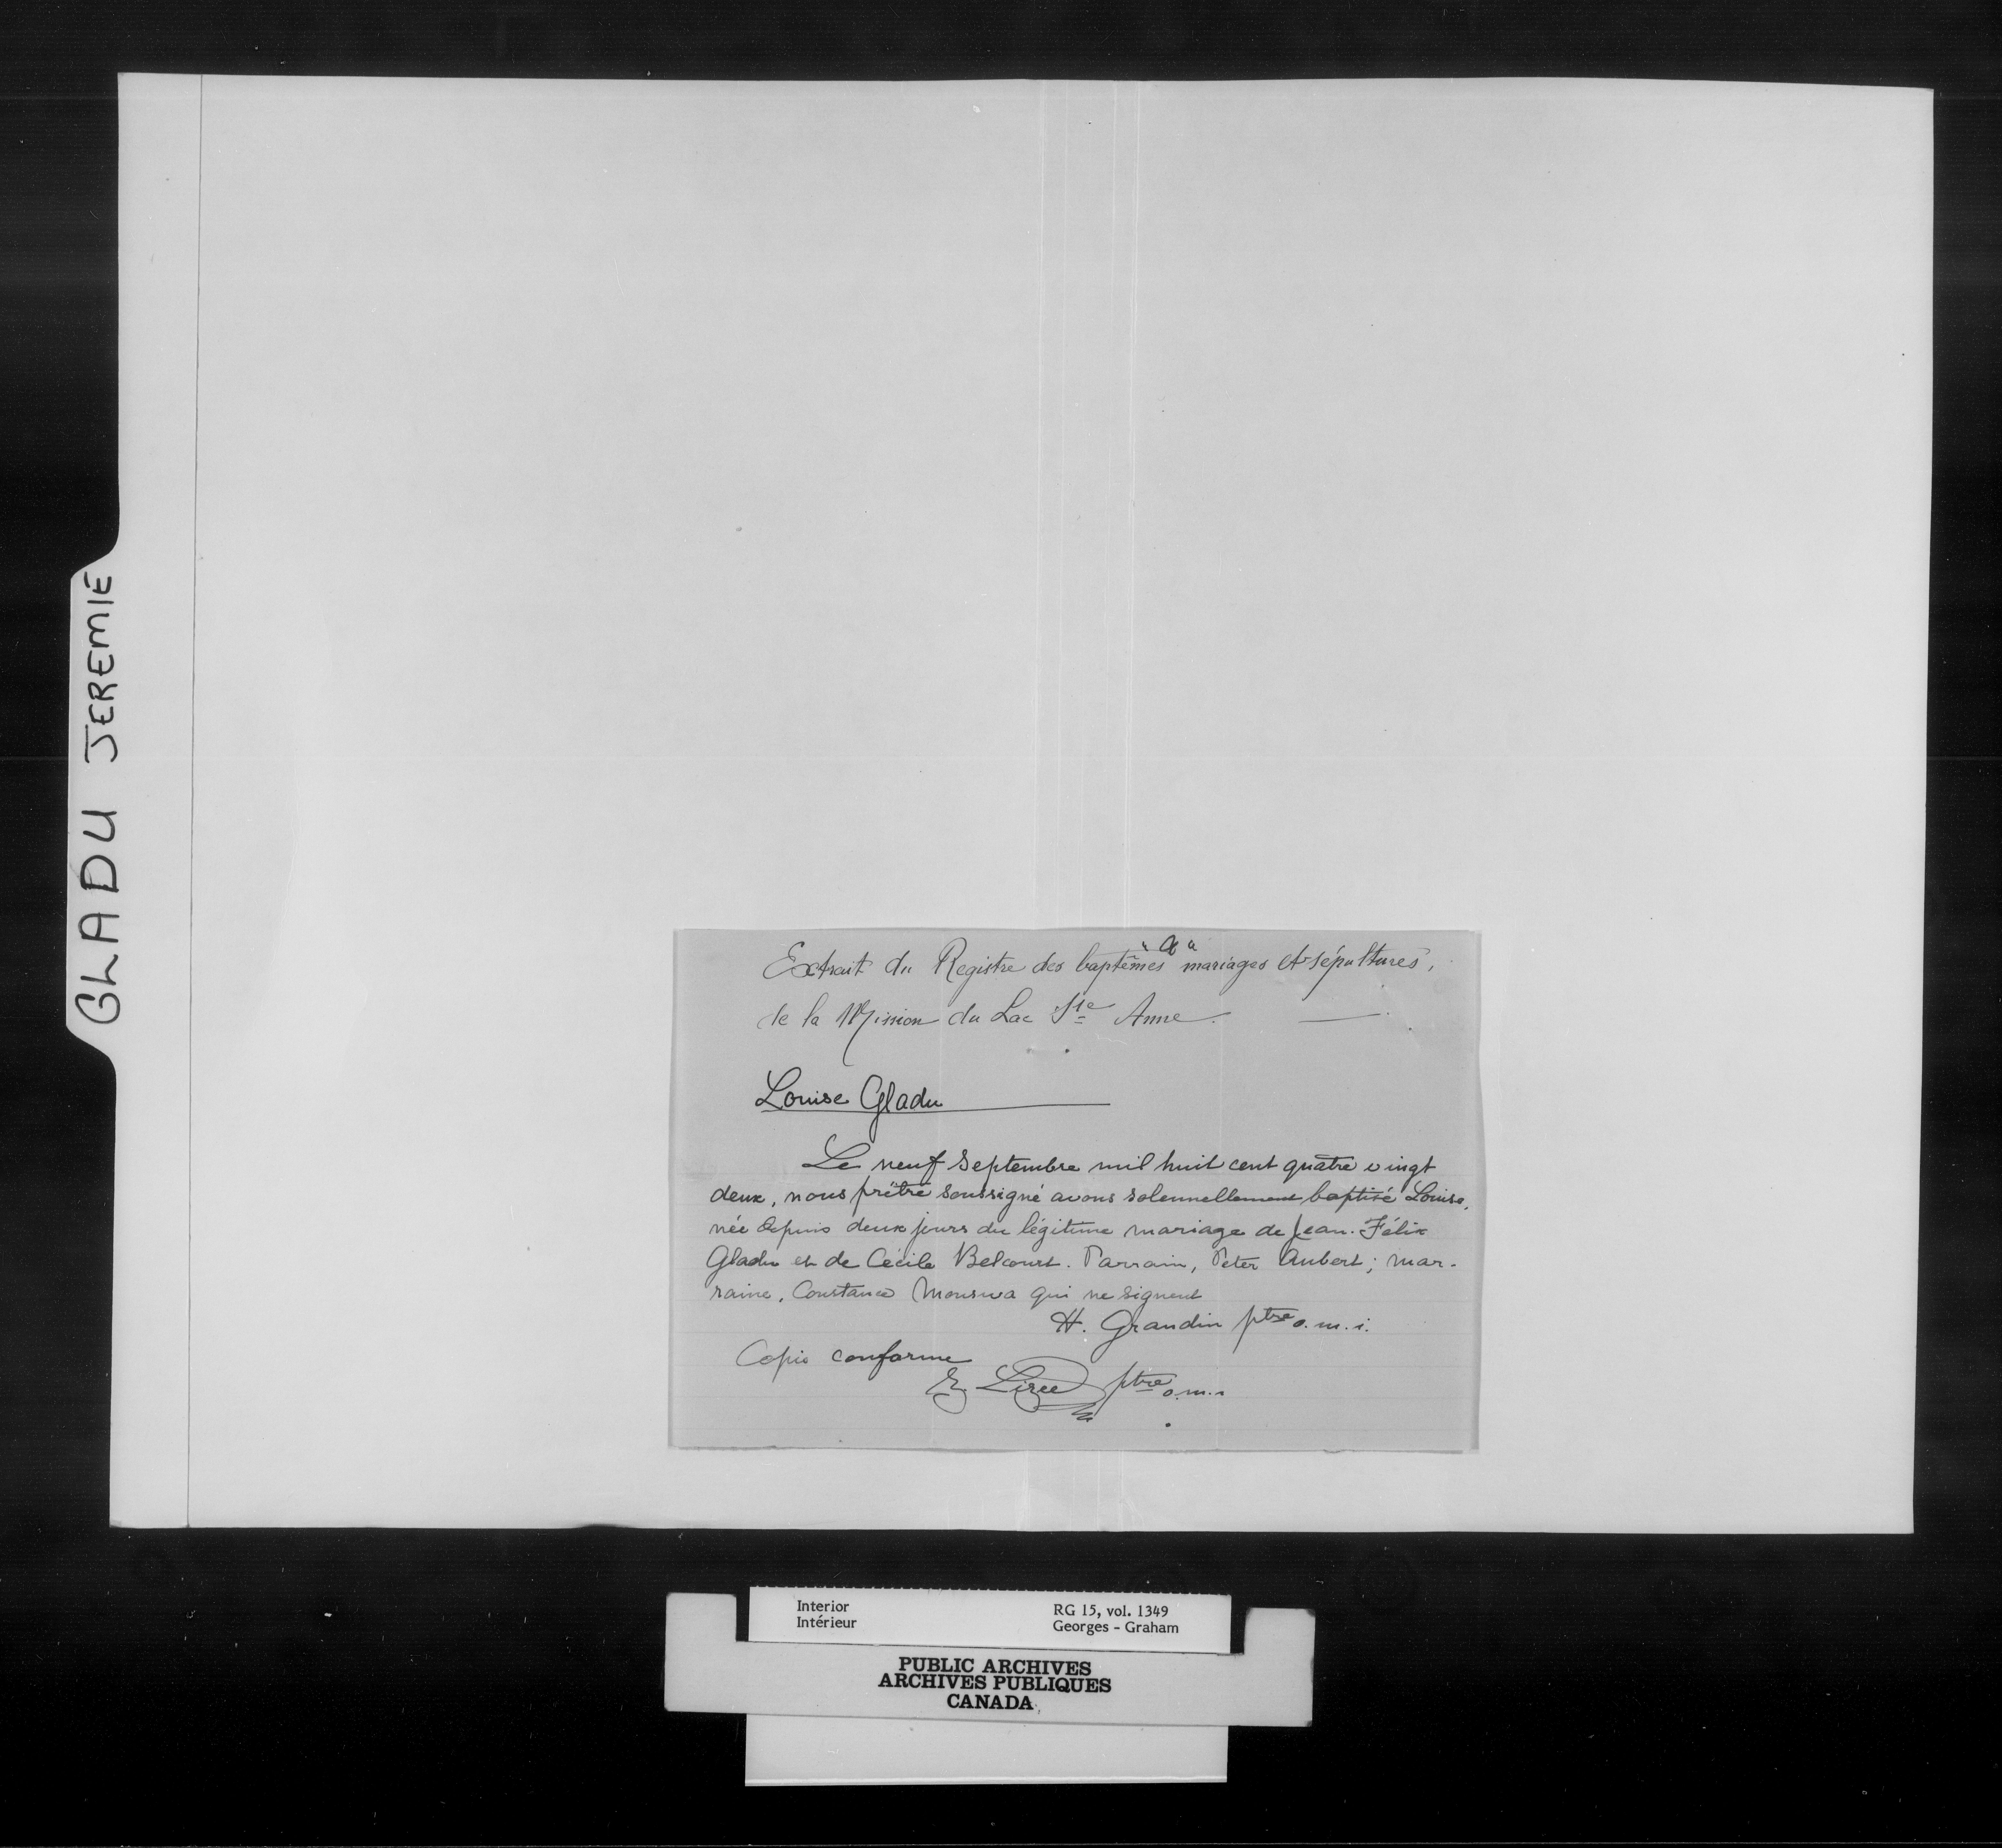 GLADU JEREMIE
"A"
Extrait du Registre des baptêmes mariages et sépultures,
de la Mission du Lac Ste Anne.
Louise Gladu
Le neuf Septembre mil huit cent quatre vingt
deux, nous prêtre soussigné avons solennellement baptisé Louise,
née depuis deux jours du légitime mariage de Jean-Félix
Gladu et de Cécile Belcourt. Parrain, Peter Aubert; mar-
raine, Constance Monswa qui ne signent
H. Grandin ptre o.m.i.
Copie conforme
Z. Lizée ptre o.m.i
Interior
Intérieur
RG 15, vol. 1349
Georges - Graham
PUBLIC ARCHIVES
ARCHIVES PUBLIQUES
CANADA